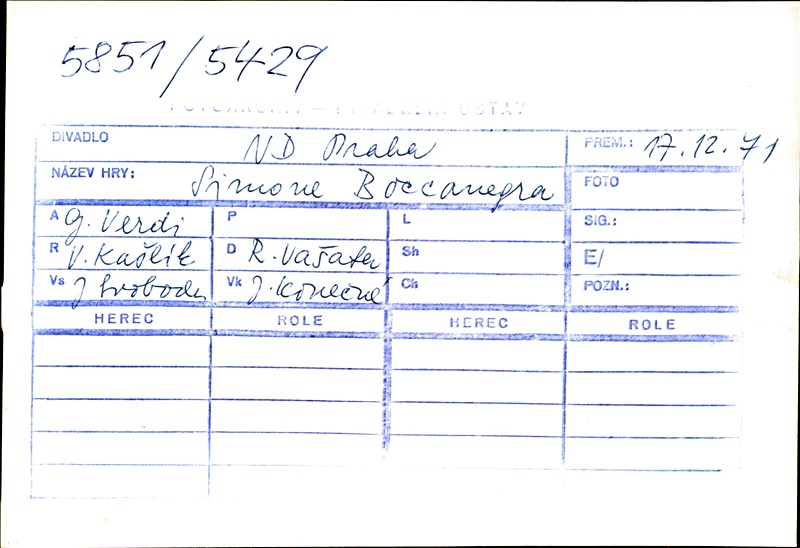 5851/5429
FOTOARCHIV – DIVADELNÍ ÚSTAV
DIVADLO ND Praha PREM.: 17.12.71
NÁZEV HRY: Simone Boccanegra FOTO
A G. Verdi P L SIG.:
R V. Kašlík D R. Vašata Sh E/
Vs J Svoboda Vk J. Konečná Ch POZN.:
HEREC ROLE HEREC ROLE